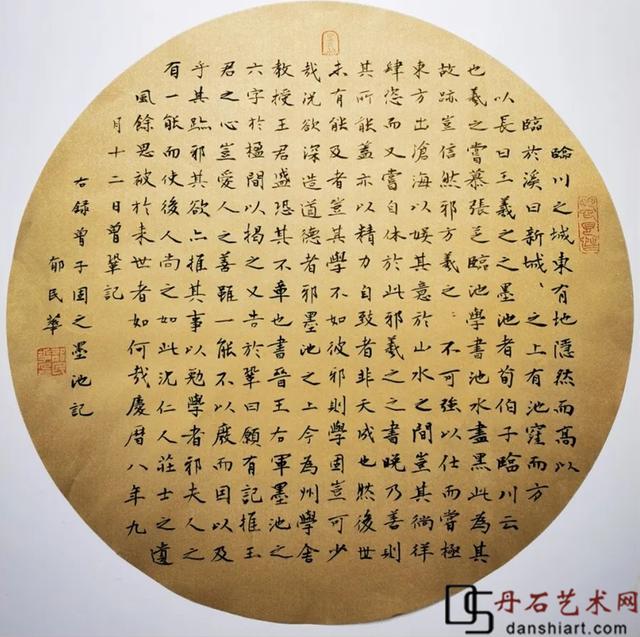 臨川之城東有地隱然而高以
臨於溪曰新城、之上有池窪而方
以長曰王羲之之墨池者荀伯子臨川云
也羲之嘗慕張芝臨池學書池水盡黑此為其
故跡豈信然邪方羲之、不可強以仕而嘗極
東方出滄海以娛其意於山水之間豈其徜徉
肆恣而又嘗自休於此邪羲之之書晚乃善則
其所能蓋亦以精力自致者非天成也然後世
未有能及者豈其學不如彼邪則學固豈可少
哉況欲深造道德者邪墨池之上今為州學舍
教授王君盛恐其不章也書晉王右軍墨池之
六字於楹間以揭之又告於鞏曰願有記推王
君之心豈愛人之善雖一能不以廢而因以及
乎其跡邪其欲亦推其事以勉學者邪夫人之
有一能而使後人尚之如此況仁人莊士之遺
風餘思被於來世者如何哉慶曆八年九
月十二日曾鞏記
右錄曾子固之墨池記
郁民華
丹石艺术网
danshiart.com